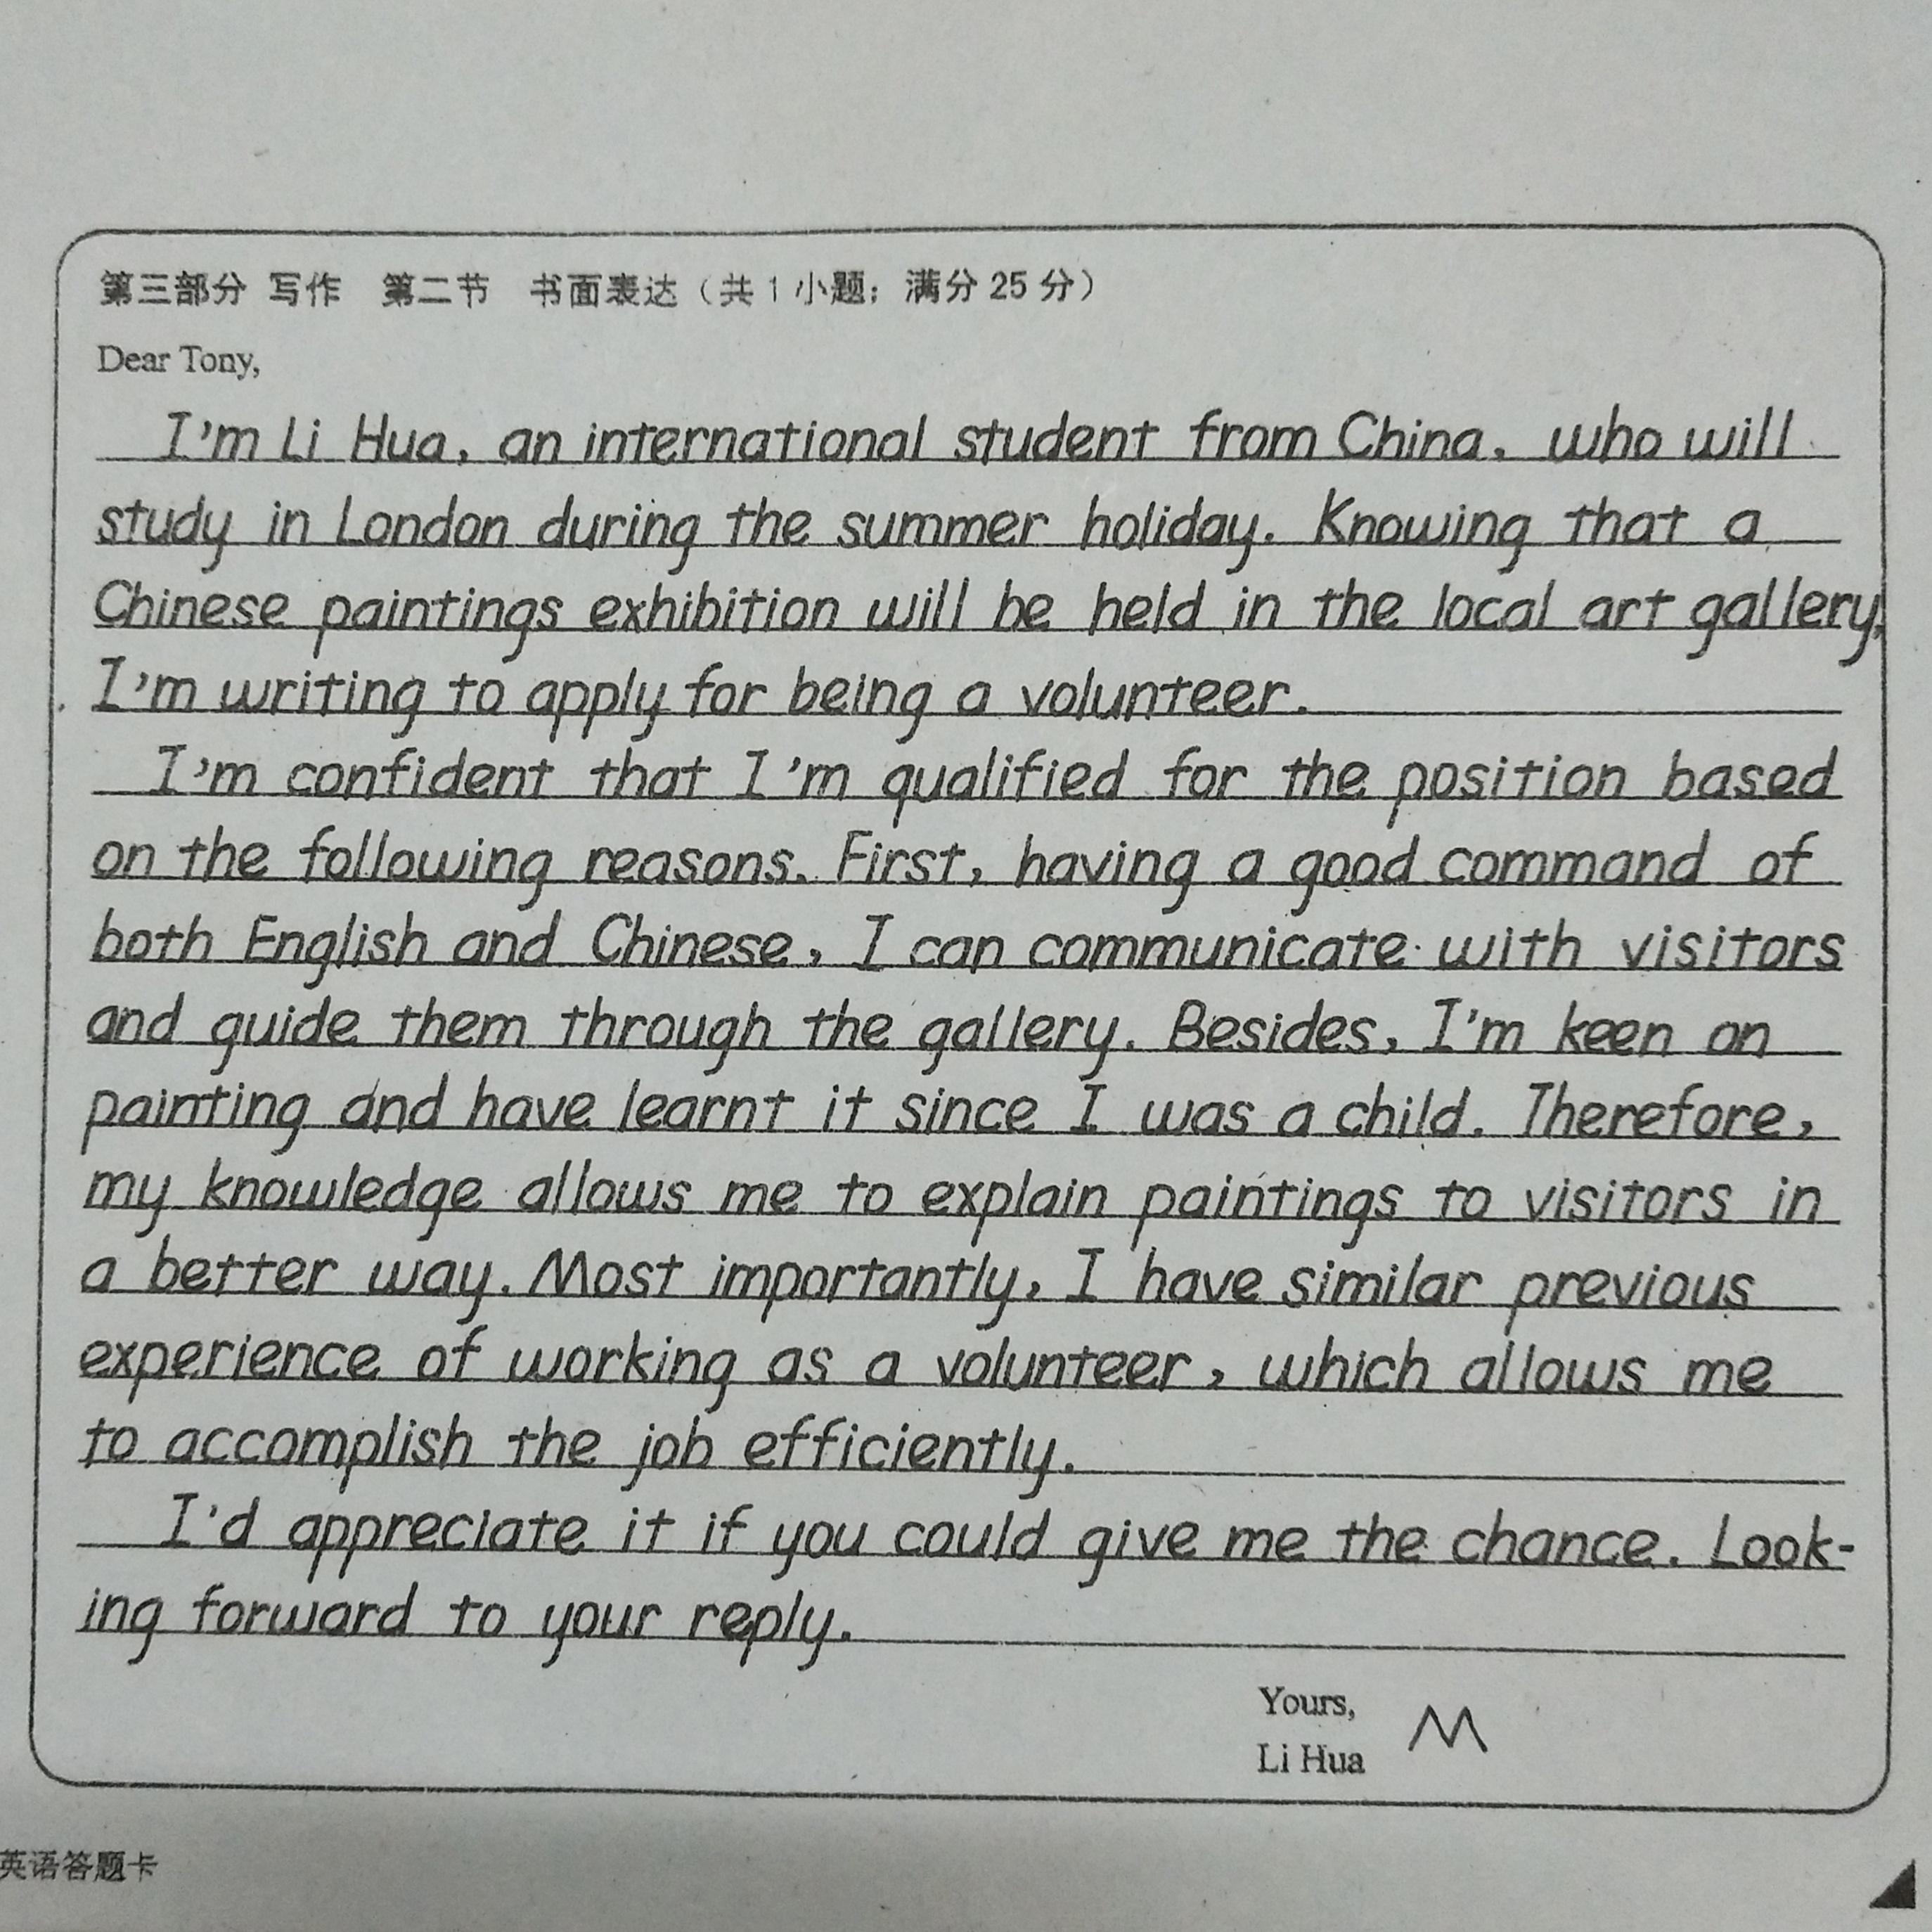 第三部分 写作 第二节 书面表达（共1小题；满分25分）
Dear Tony,
I'm Li Hua, an international student from China, who will
study in London during the summer holiday. Knowing that a
Chinese paintings exhibition will be held in the local art gallery,
I'm writing to apply for being a volunteer.
I'm confident that I'm qualified for the position based
on the following reasons. First, having a good command of
both English and Chinese, I can communicate with visitors
and guide them through the gallery. Besides, I'm keen on
painting and have learnt it since I was a child. Therefore,
my knowledge allows me to explain paintings to visitors in
a better way. Most importantly, I have similar previous
experience of working as a volunteer, which allows me
to accomplish the job efficiently.
I'd appreciate it if you could give me the chance. Look-
ing forward to your reply.
Yours,
Li Hua
M
英语答题卡